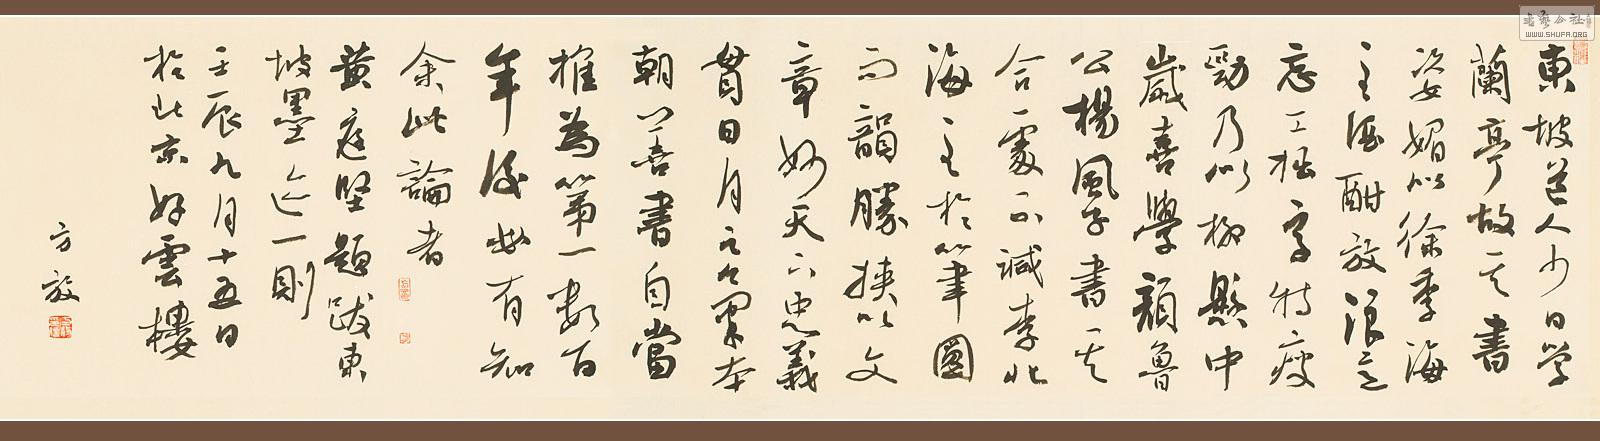 東坡道人少日學
蘭亭故其書
姿媚似徐季海
至酒酣放浪意
忘工拙字特瘦
勁乃似柳懸中
歲喜學顏魯
公楊風子書其
合處不減李北
海至於筆圓
而韻勝挾以文
章妙天下忠義
貫日月之氣本
朝善書自當
推為第一數百
年後必有知
余此論者
黃庭堅題跋東
坡墨迹一則
壬辰九月十五日
於北京好雲樓
方放
書藝公社
WWW.SHUFA.ORG